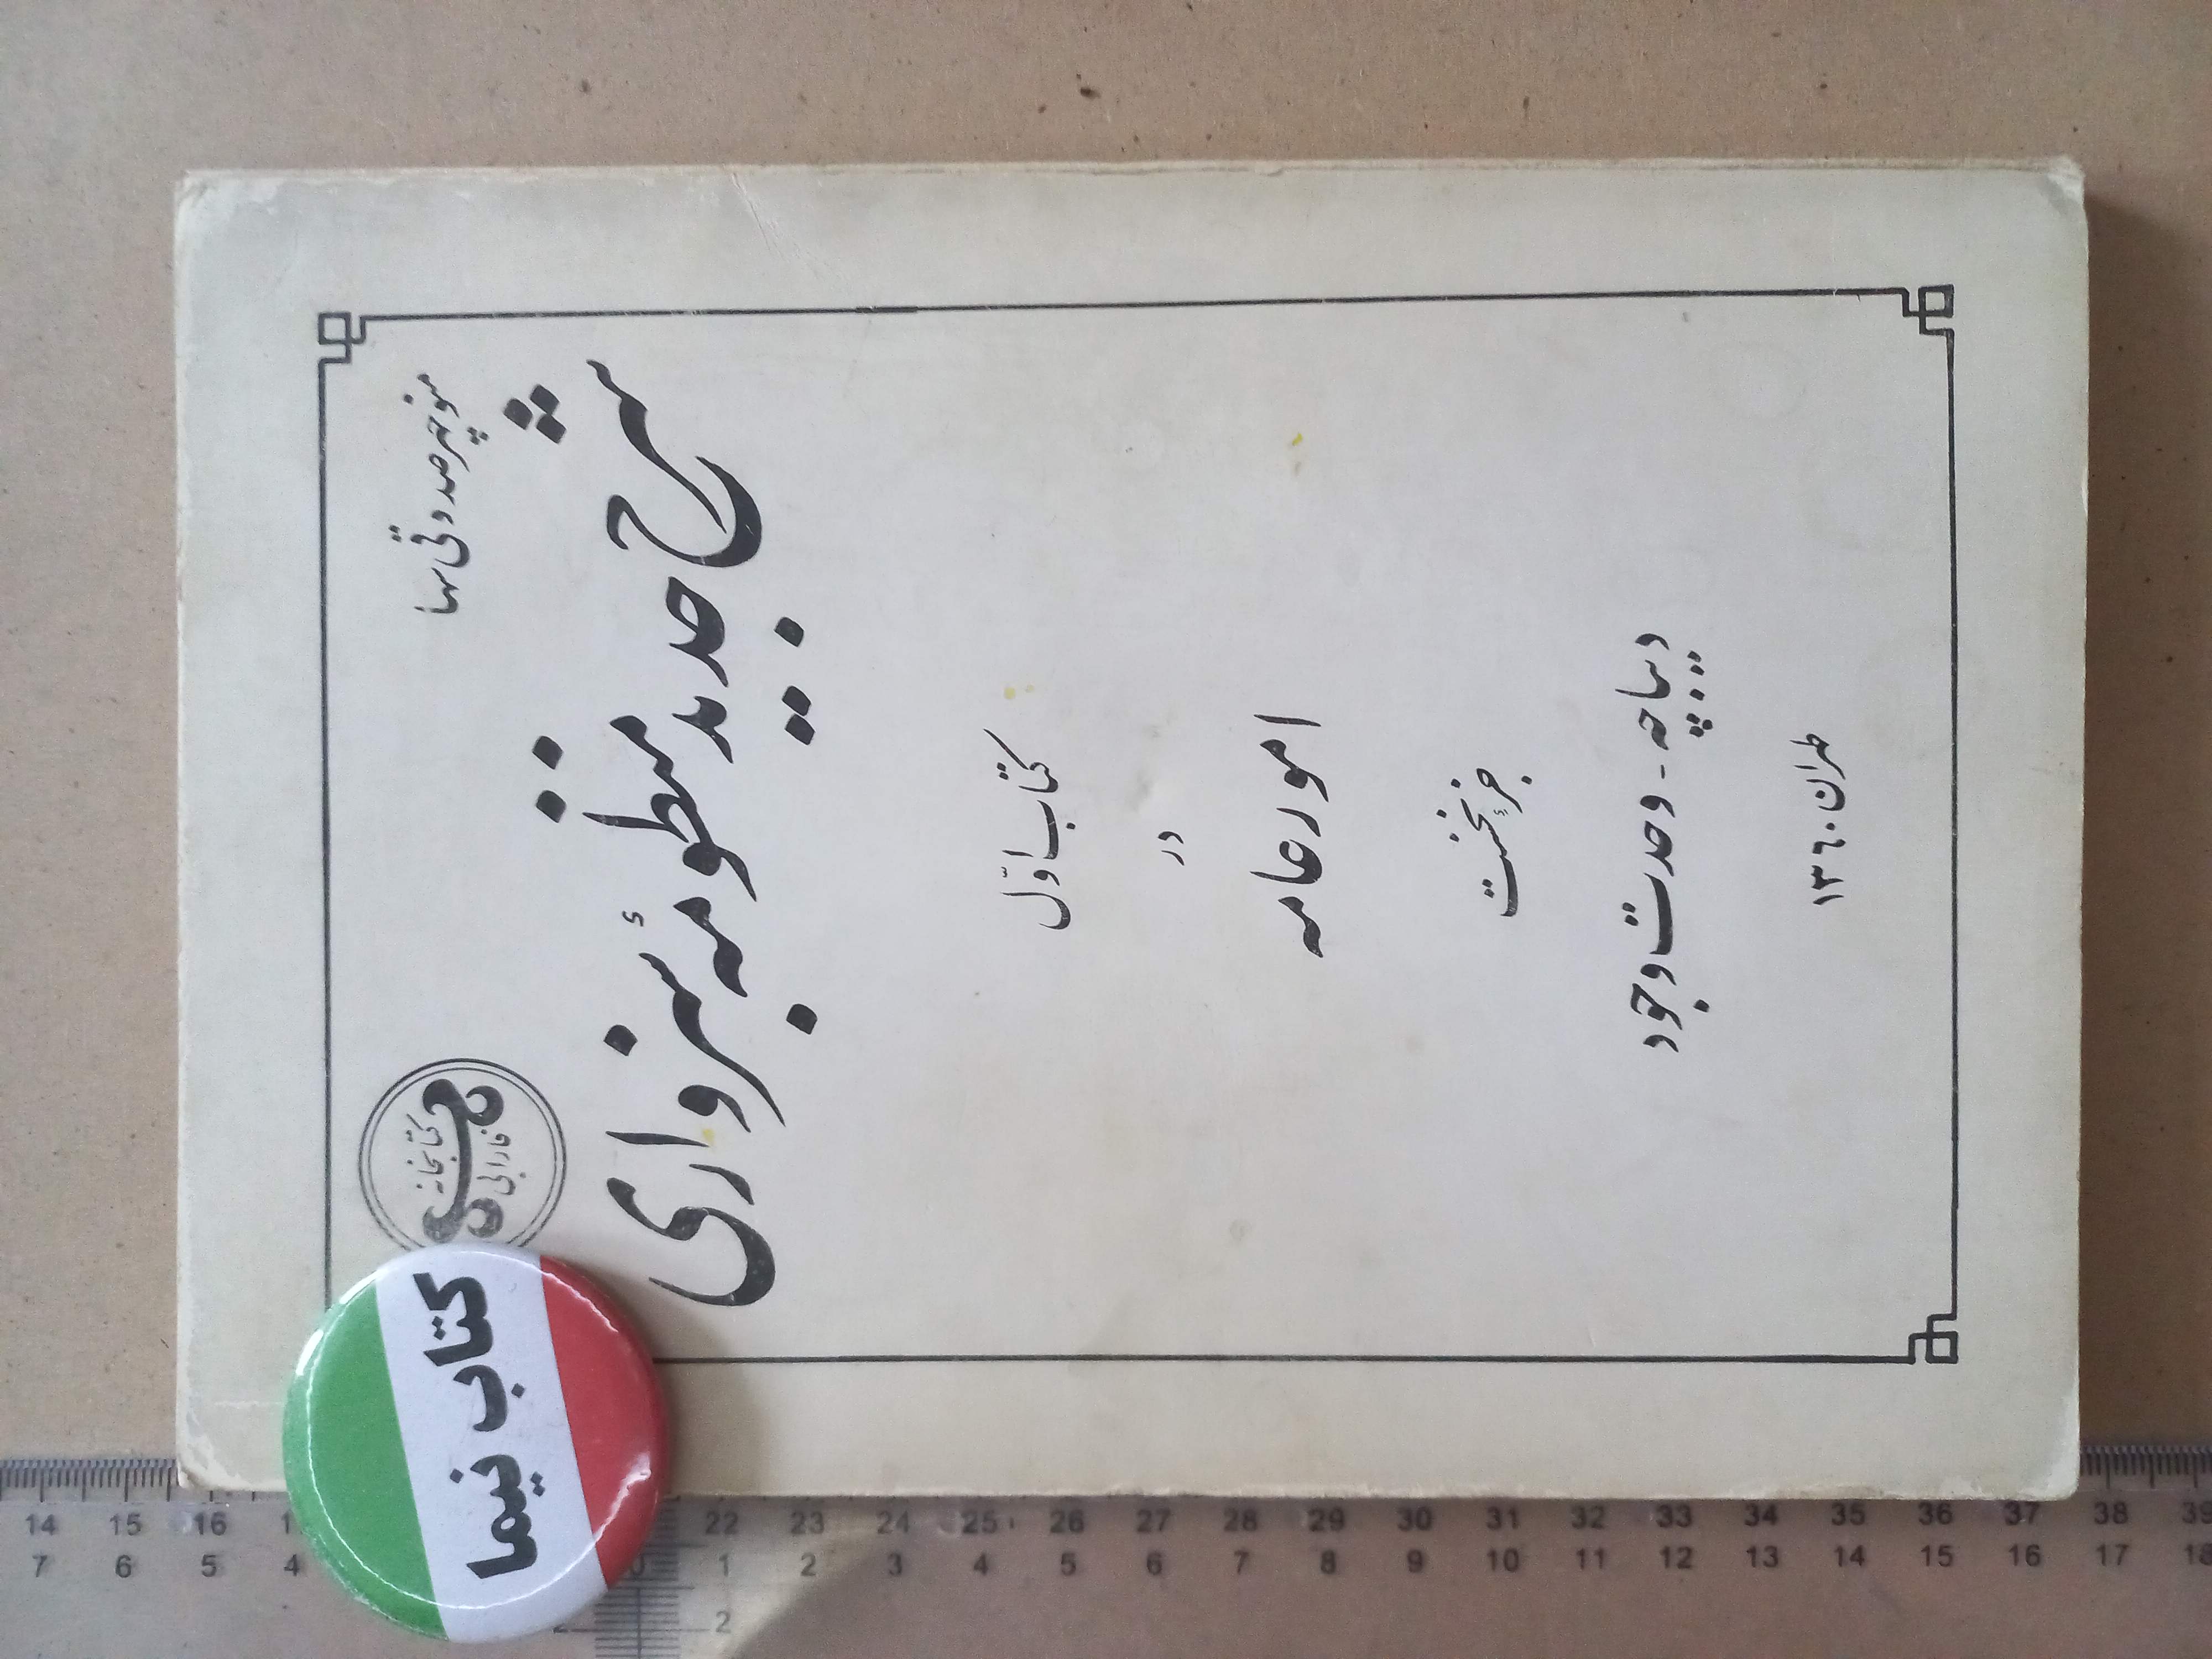 کتابخانه
فارابی
شرح جدید منظومهٔ سبزواری
کتاب اوّل
در
امور عامه
جزء نخست
دیباچه - وحدت وجود
طهران ۱۳۶۰
کتاب نیما
14 15 16 22 23 24 25 26 27 28 29 30 31 32 33 34 35 36 37 38 39
7 6 5 4 0 1 2 3 4 5 6 7 8 9 10 11 12 13 14 15 16 17 18
2 2